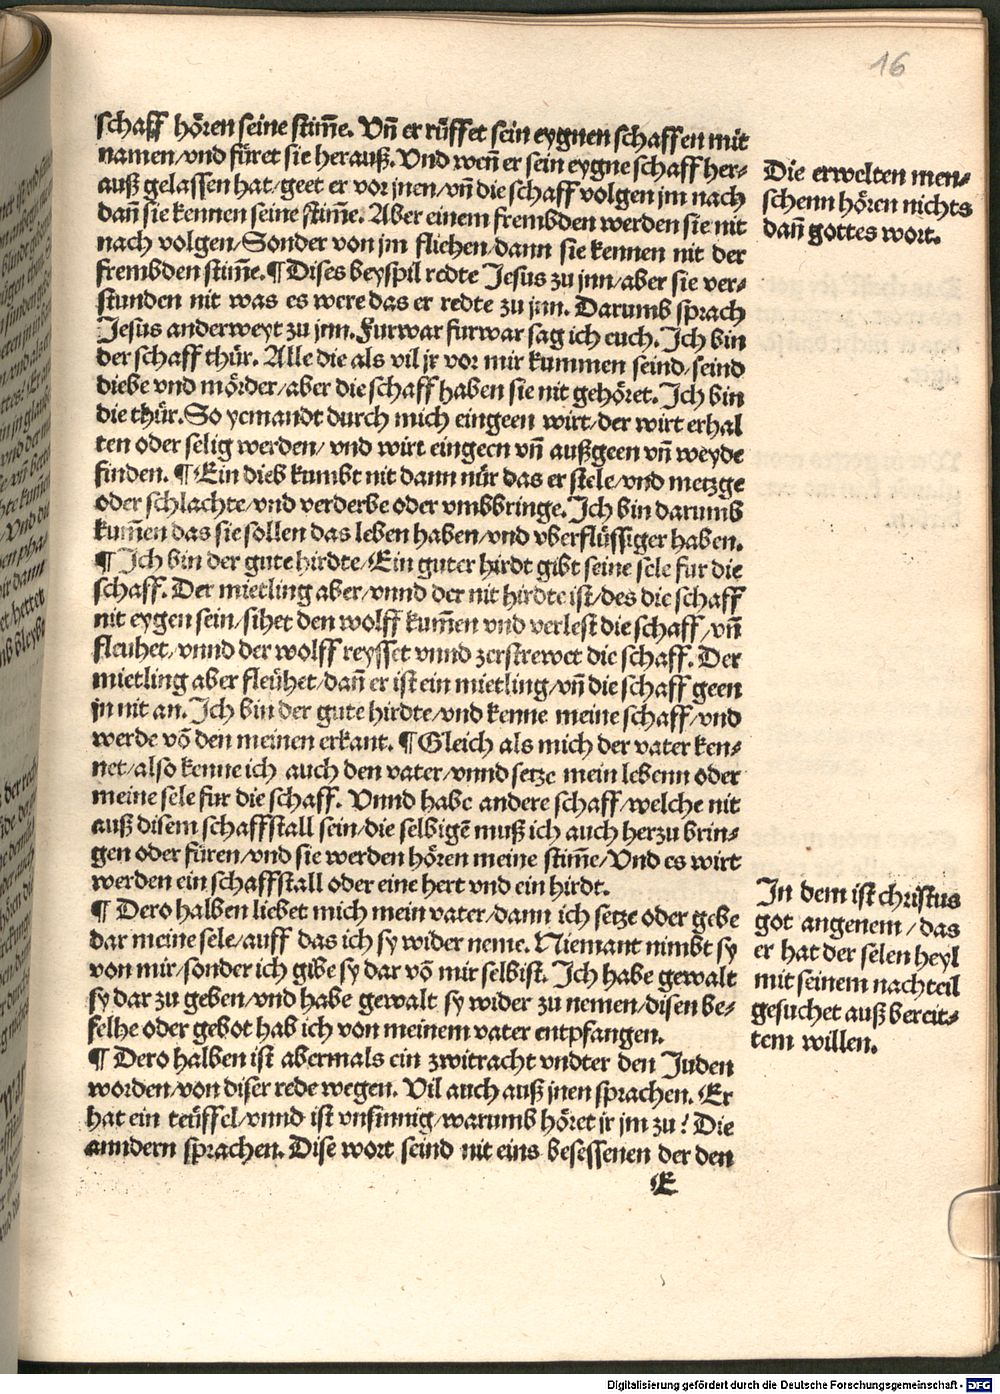 16
schaff hören seine stim̄e. Vn̄ er rüffet sein eygnen schaffen mit
namen/vnd füret sie herauß. Vnd wen̄ er sein eygne schaff her-
auß gelassen hat/geet er vor jnen/vn̄ die schaff volgen jm nach
dan̄ sie kennen seine stim̄e. Aber einem frembden werden sie nit
nach volgen/Sonder von jm fliehen/dann sie kennen nit der
frembden stim̄e. ¶ Dises beyspil redte Jesus zu jnn/aber sie ver-
stunden nit was es were das er redte zu jnn. Darumb sprach
Jesus anderweyt zu jnn. Furwar furwar sag ich euch. Ich bin
der schaff thür. Alle die als vil jr vor mir kummen seind/seind
diebe vnd mörder/aber die schaff haben sie nit gehöret. Ich bin
die thür. So yemandt durch mich eingeen wirt/der wirt erhal
ten oder selig werden/ vnd wirt eingeen vn̄ außgeen vn̄ weyde
finden. ¶ Ein dieb kumbt nit dann nür das er stele/vnd metzge
oder schlachte/vnd verderbe oder vmbbringe. Ich bin darumb
kum̄en das sie sollen das leben haben/vnd vberflüssiger haben.
¶ Ich bin der gute hirdte/Ein guter hirdt gibt seine sele fur die
schaff. Der mietling aber/vnnd der nit hirdte ist/des die schaff
nit eygen sein/sihet den wolff kum̄en vnd verlest die schaff/vn̄
fleuhet/vnnd der wolff reysset vnnd zerstrewet die schaff. Der
mietling aber fleühet/dan̄ er ist ein mietling/vn̄ die schaff geen
jn nit an. Ich bin der gute hirdte/vnd kenne meine schaff/vnd
werde võ den meinen erkant. ¶ Gleich als mich der vater ken-
net/also kenne ich auch den vater/vnnd setze mein lebenn oder
meine sele fur die schaff. Vnnd habe andere schaff/welche nit
auß disem schaffstall sein/die selbigē muß ich auch herzu brin-
gen oder füren/vnd sie werden hören meine stim̄e/Vnd es wirt
werden ein schaffstall oder eine hert vnd ein hirdt.
¶ Dero halben liebet mich mein vater/dann ich setze oder gebe
dar meine sele/auff das ich sy wider neme. Niemant nimbt sy
von mir/sonder ich gibe sy dar võ mir selbist. Ich habe gewalt
sy dar zu geben/vnd habe gewalt sy wider zu nemen/disen be-
felhe oder gebot hab ich von meinem vater entpfangen.
¶ Dero halben ist abermals ein zwitracht vndter den Juden
worden/von diser rede wegen. Vil auch auß jnen sprachen. Er
hat ein teüffel/vnnd ist vnsinnig/warumb höret jr jm zu? Die
anndern sprachen. Dise wort seind nit eins besessenen der den
E
Die erwelten men-
schenn hören nichts
dan̄ gottes wort.
In dem ist christus
got angenem/das
er hat der selen heyl
mit seinem nachteil
gesuchet auß bereit-
tem willen.
Digitalisierung gefördert durch die Deutsche Forschungsgemeinschaft - DFG